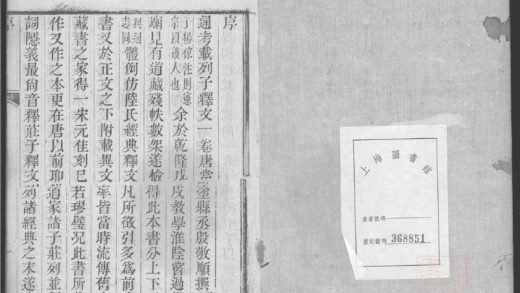 序
通考載列子釋文一卷唐當塗縣丞殷敬順撰
子楊倞注則憲
宗以後人也
余於乾隆戊戌教學淮陰嘗過
廟見有道藏殘帙數架遂檢得此本書分上下
與通
志同
體例仿陸氏經典釋文凡所徵引多為前
書又於正文之下附載異文率皆當時流傳舊
藏書之家得一宋元佳刻已若珙璧況此書所
作又作之本更在唐以前耶道家諸子莊列並
詞隱義最尙音釋莊子釋文列諸經典之末遂
序
上海圖書館
索書號碼
登記號碼 368851